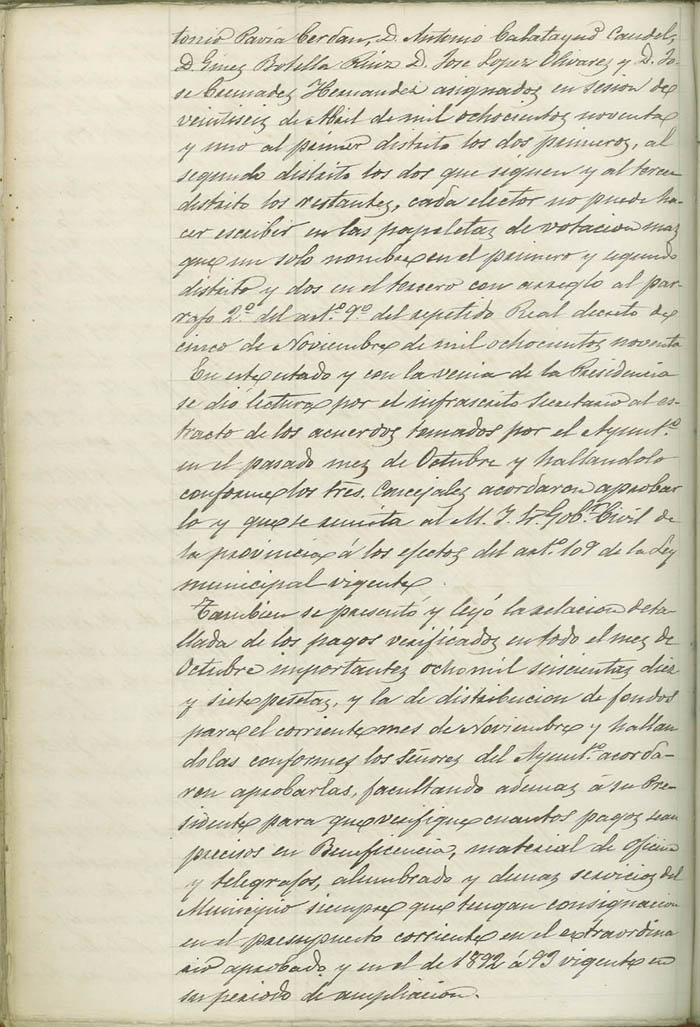 tonio Pavia Cerdan, D. Antonio Calatayud Candel,
D. Gines Botella Ruiz D. Jose Lopez Olivarez y D. Jo-
se Bernadez Hernandez asignados en sesion de
veintiseis de Abril de mil ochocientos noventa
y uno al primer distrito los dos primeros, al
segundo distrito los dos que siguen y al tercer
distrito los restantes, cada elector no puede ha-
cer escribir en las papeletas de votacion mas
que un solo nombre en el primero y segundo
distrito y dos en el tercero con arreglo al par-
rafo 2.º del art.º 9.º del repetido Real decreto de
cinco de Noviembre de mil ochocientos noventa
En este estado y con la venia de la Presidencia
se dió lectura por el infrascrito Secretario al es-
tracto de los acuerdos tomados por el Ayunt.º
en el pasado mes de Octubre y hallandolo
conforme los tres. Concejales acordaron aprobar
lo y que se remita al M. I. Sr. Gob.r Civil de
la provincia á los efectos del art.º 109 de la Ley
municipal vigente.
Tambien se presentó y leyó la relacion deta-
llada de los pagos verificados en todo el mes de
Octubre importantes ocho mil seiscientas diez
y siete pesetas, y la de distribucion de fondos
para el corriente mes de Noviembre y hallan
dolas conformes los Señores del Ayunt.º acorda-
ron aprobarlas, facultando ademas á su Pre-
sidente para que verifique cuantos pagos sean
precisos en Beneficencia, material de oficina
y telegrafos, alumbrado y demas servicios del
Municipio siempre que tengan consignacion
en el presupuesto corriente en el extraordina
rio aprobado y en el de 1892 á 93 vigente en
su periodo de ampliacion.